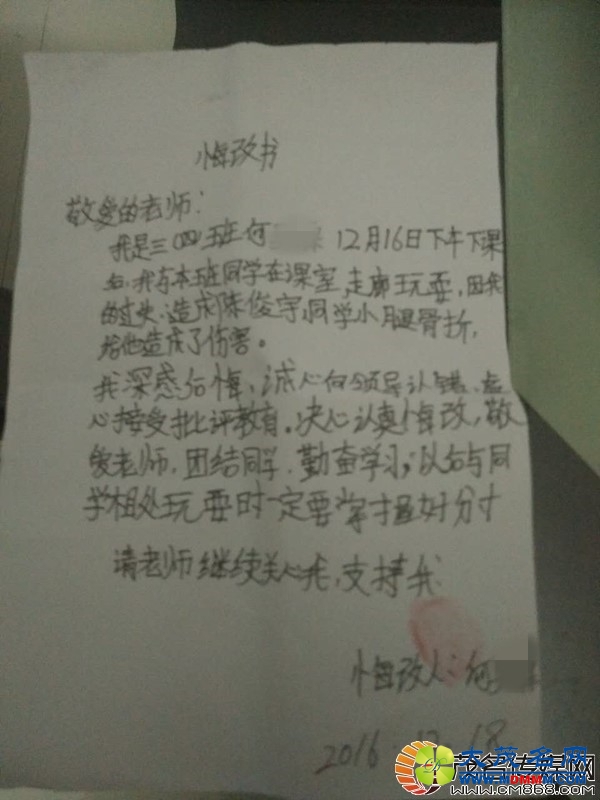 悔改书
敬爱的老师:
我是三(四)班何 12月16日下午下课
后,我与本班同学在课室,走廊玩耍,因我
的过失,造成陈俊宇同学小腿骨折,
给他造成了伤害。
我深感后悔,诚心向领导认错,虚
心接受批评教育。决心认真悔改,敬
爱老师,团结同学,勤奋学习,以后与同
学相处玩耍时一定要掌握好分寸
请老师继续关心我,支持我
悔改人:何
2016 12 18
茂名传媒网
WWW.CM868.COM